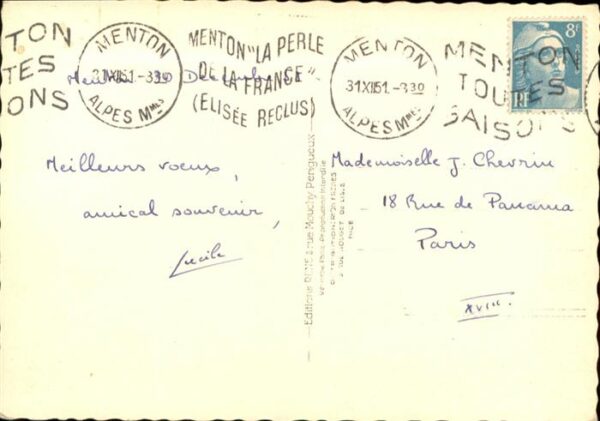 TON
TES
ONS
MENTON
31 XII51 - 8 30
ALPES Mmes
MENTON "LA PERLE
DE LA FRANCE"
(ELISÉE RECLUS)
MENTON
31 XII51 - 8 30
ALPES Mmes
MENTON
TOUTES
SAISONS
8F
RF
Menton 30
Meilleurs voeux,
amical souvenir,
Lucile
Editions RENE 4 rue Mouchy Perigueux
Mademoiselle J. Chevrin
18 Rue de Panama
Paris
XVIII.